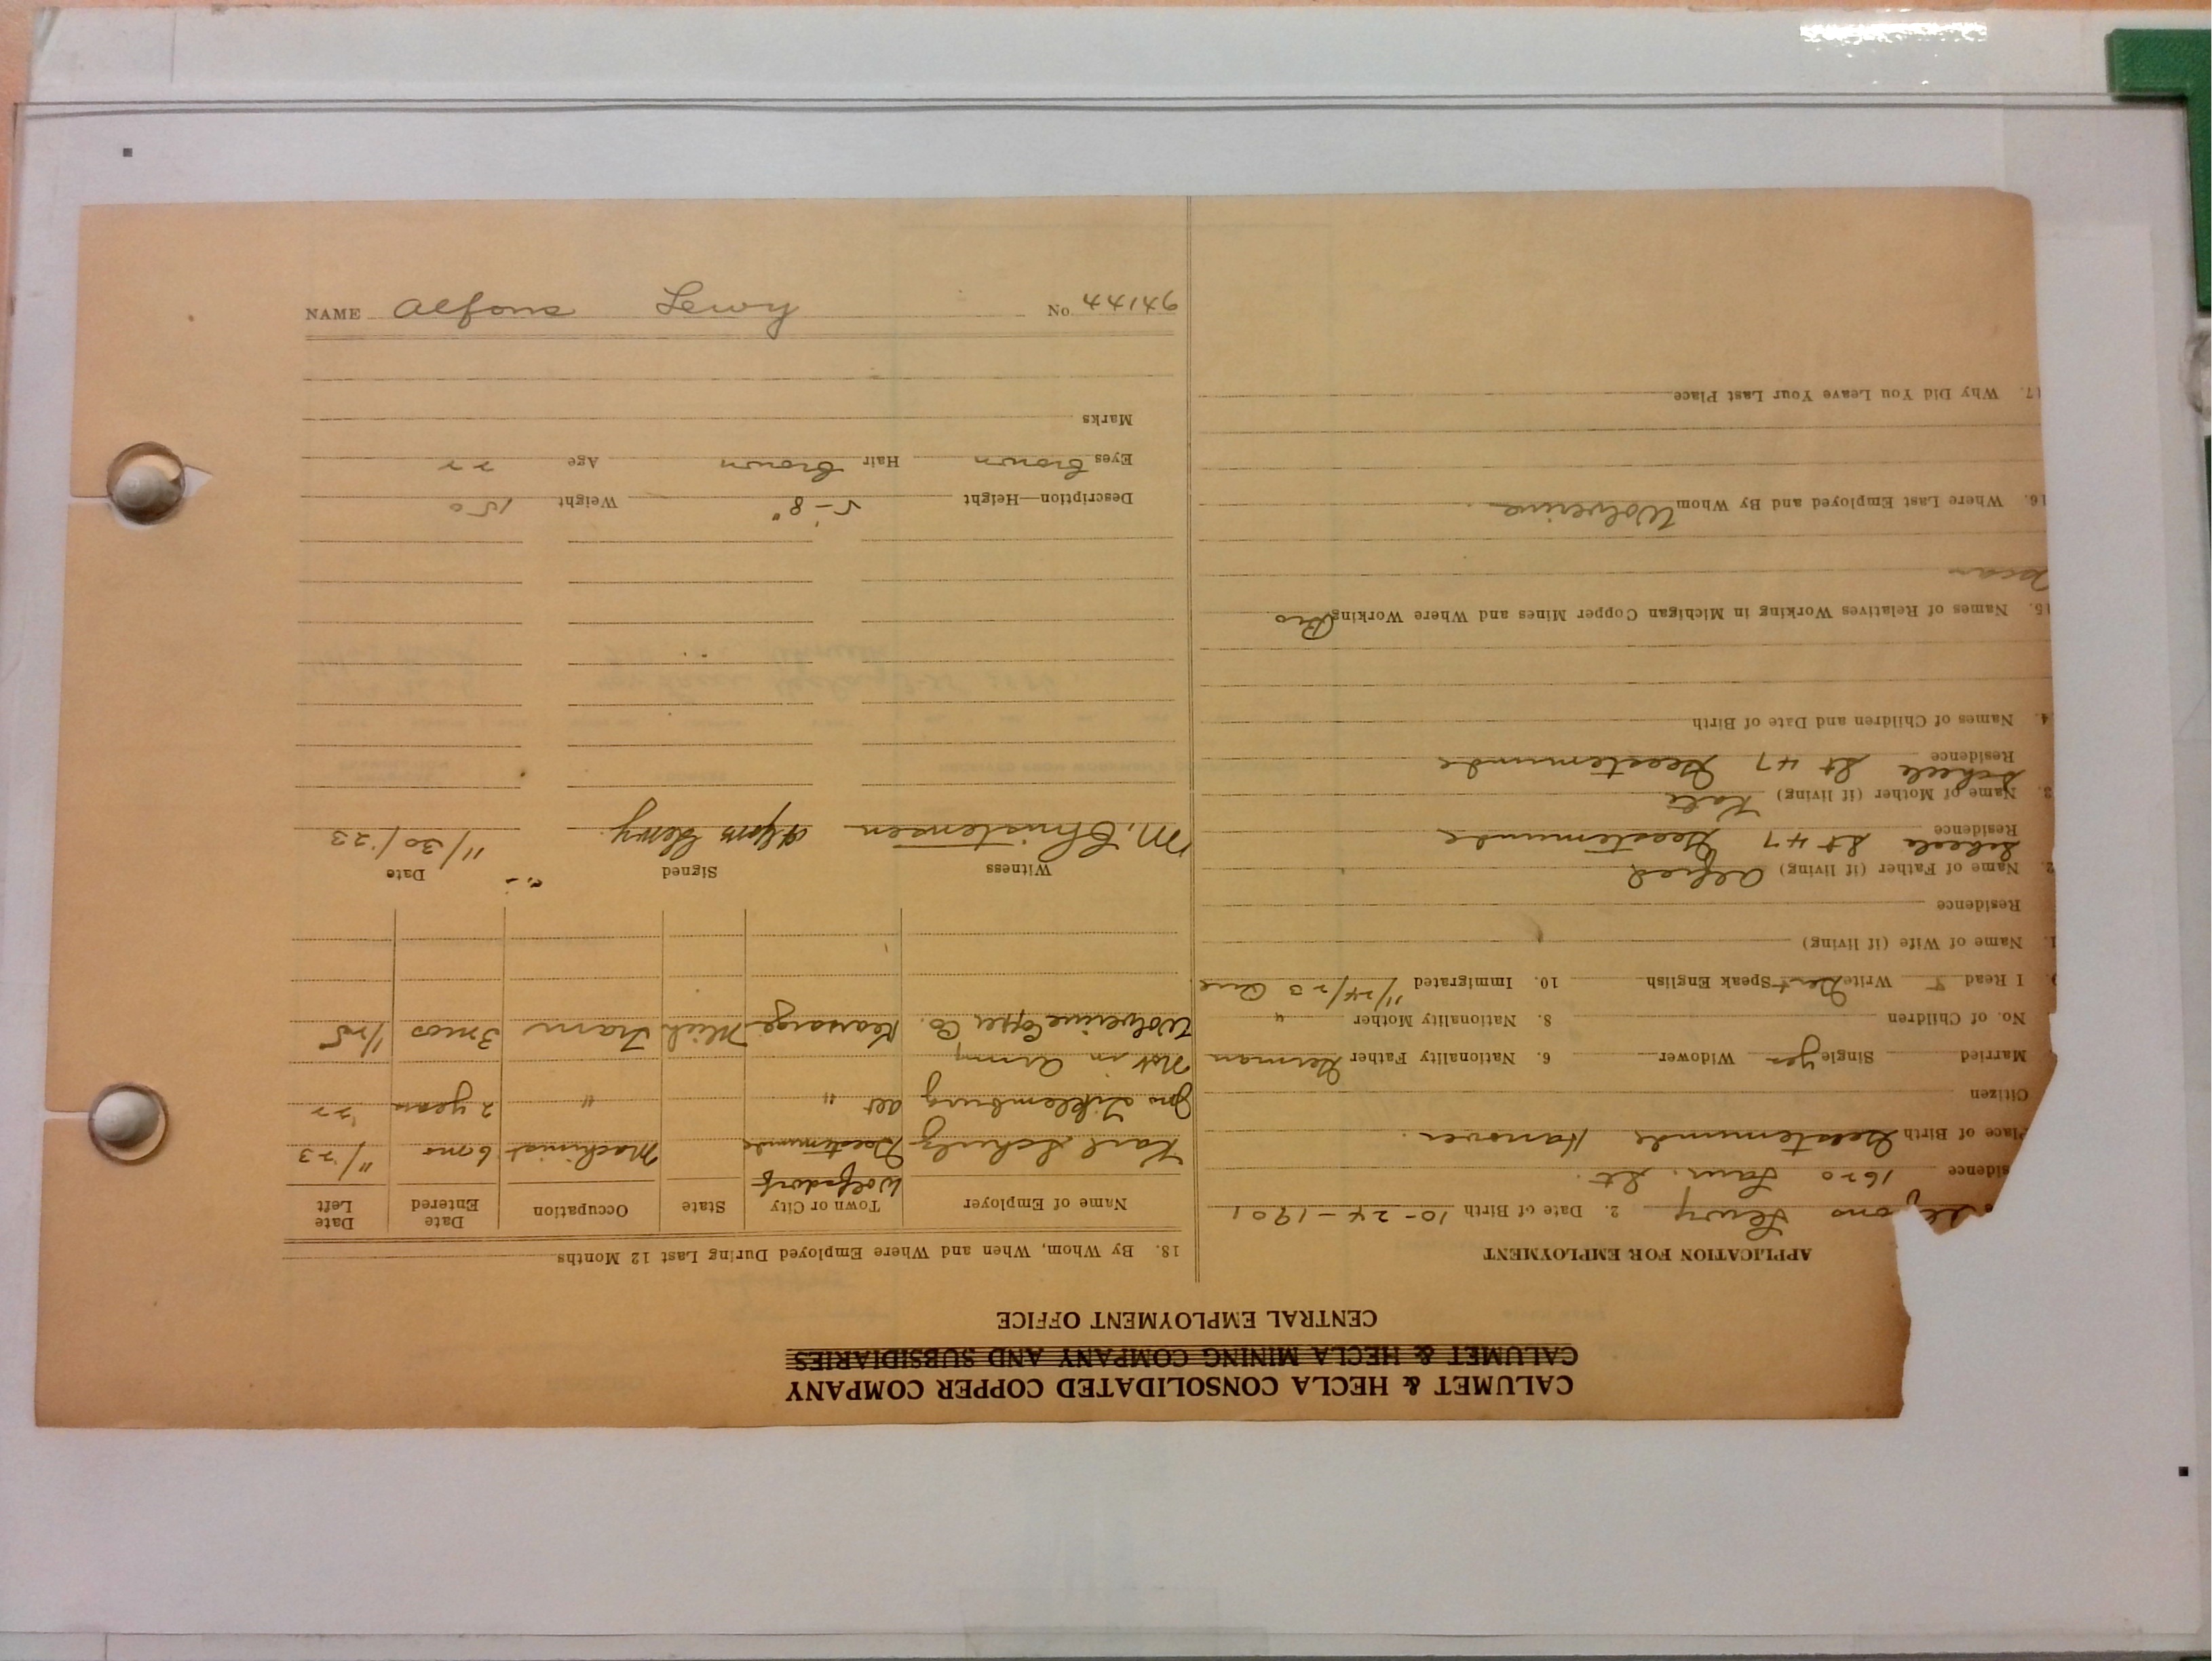 CALUMET & HECLA CONSOLIDATED COPPER COMPANY
CALUMET & HECLA MINING COMPANY AND SUBSIDIARIES
CENTRAL EMPLOYMENT OFFICE
APPLICATION FOR EMPLOYMENT
Lewy 2. Date of Birth 10-24-1901
sidence 1620 Lam. St.
Place of Birth Geestemunde Hanover.
Citizen
Married Single yes Widower 6. Nationality Father German
No. of Children 8. Nationality Mother "
9. I Read & Write Ger Speak English 10. Immigrated 11/24/23
1. Name of Wife (if living)
Residence
2. Name of Father (if living) Alfred
Residence Scheele St 47 Geestemunde
3. Name of Mother (if living)
Residence Scheele St 47 Geestemunde
4. Names of Children and Date of Birth
15. Names of Relatives Working in Michigan Copper Mines and Where Working Bro
Oscar
16. Where Last Employed and By Whom Wolverine.
17. Why Did You Leave Your Last Place
18. By Whom, When and Where Employed During Last 12 Months
Name of Employer Town or City State Occupation Date Entered Date Left
Wolfsdorf
Karl Schulz Geestemunde Machinist 6 mo 11/23
Jno act " " 2 years 22
Not in Army
Wolverine Copper Co. Kearsarge Mich Tram 3 mos 1/25
Witness Signed Date
M. Christensen Alfons Lewy. 11/30/23
Description—Height 5'-8" Weight 150
Eyes brown Hair brown Age 22
Marks
NAME Alfons Lewy No. 94144